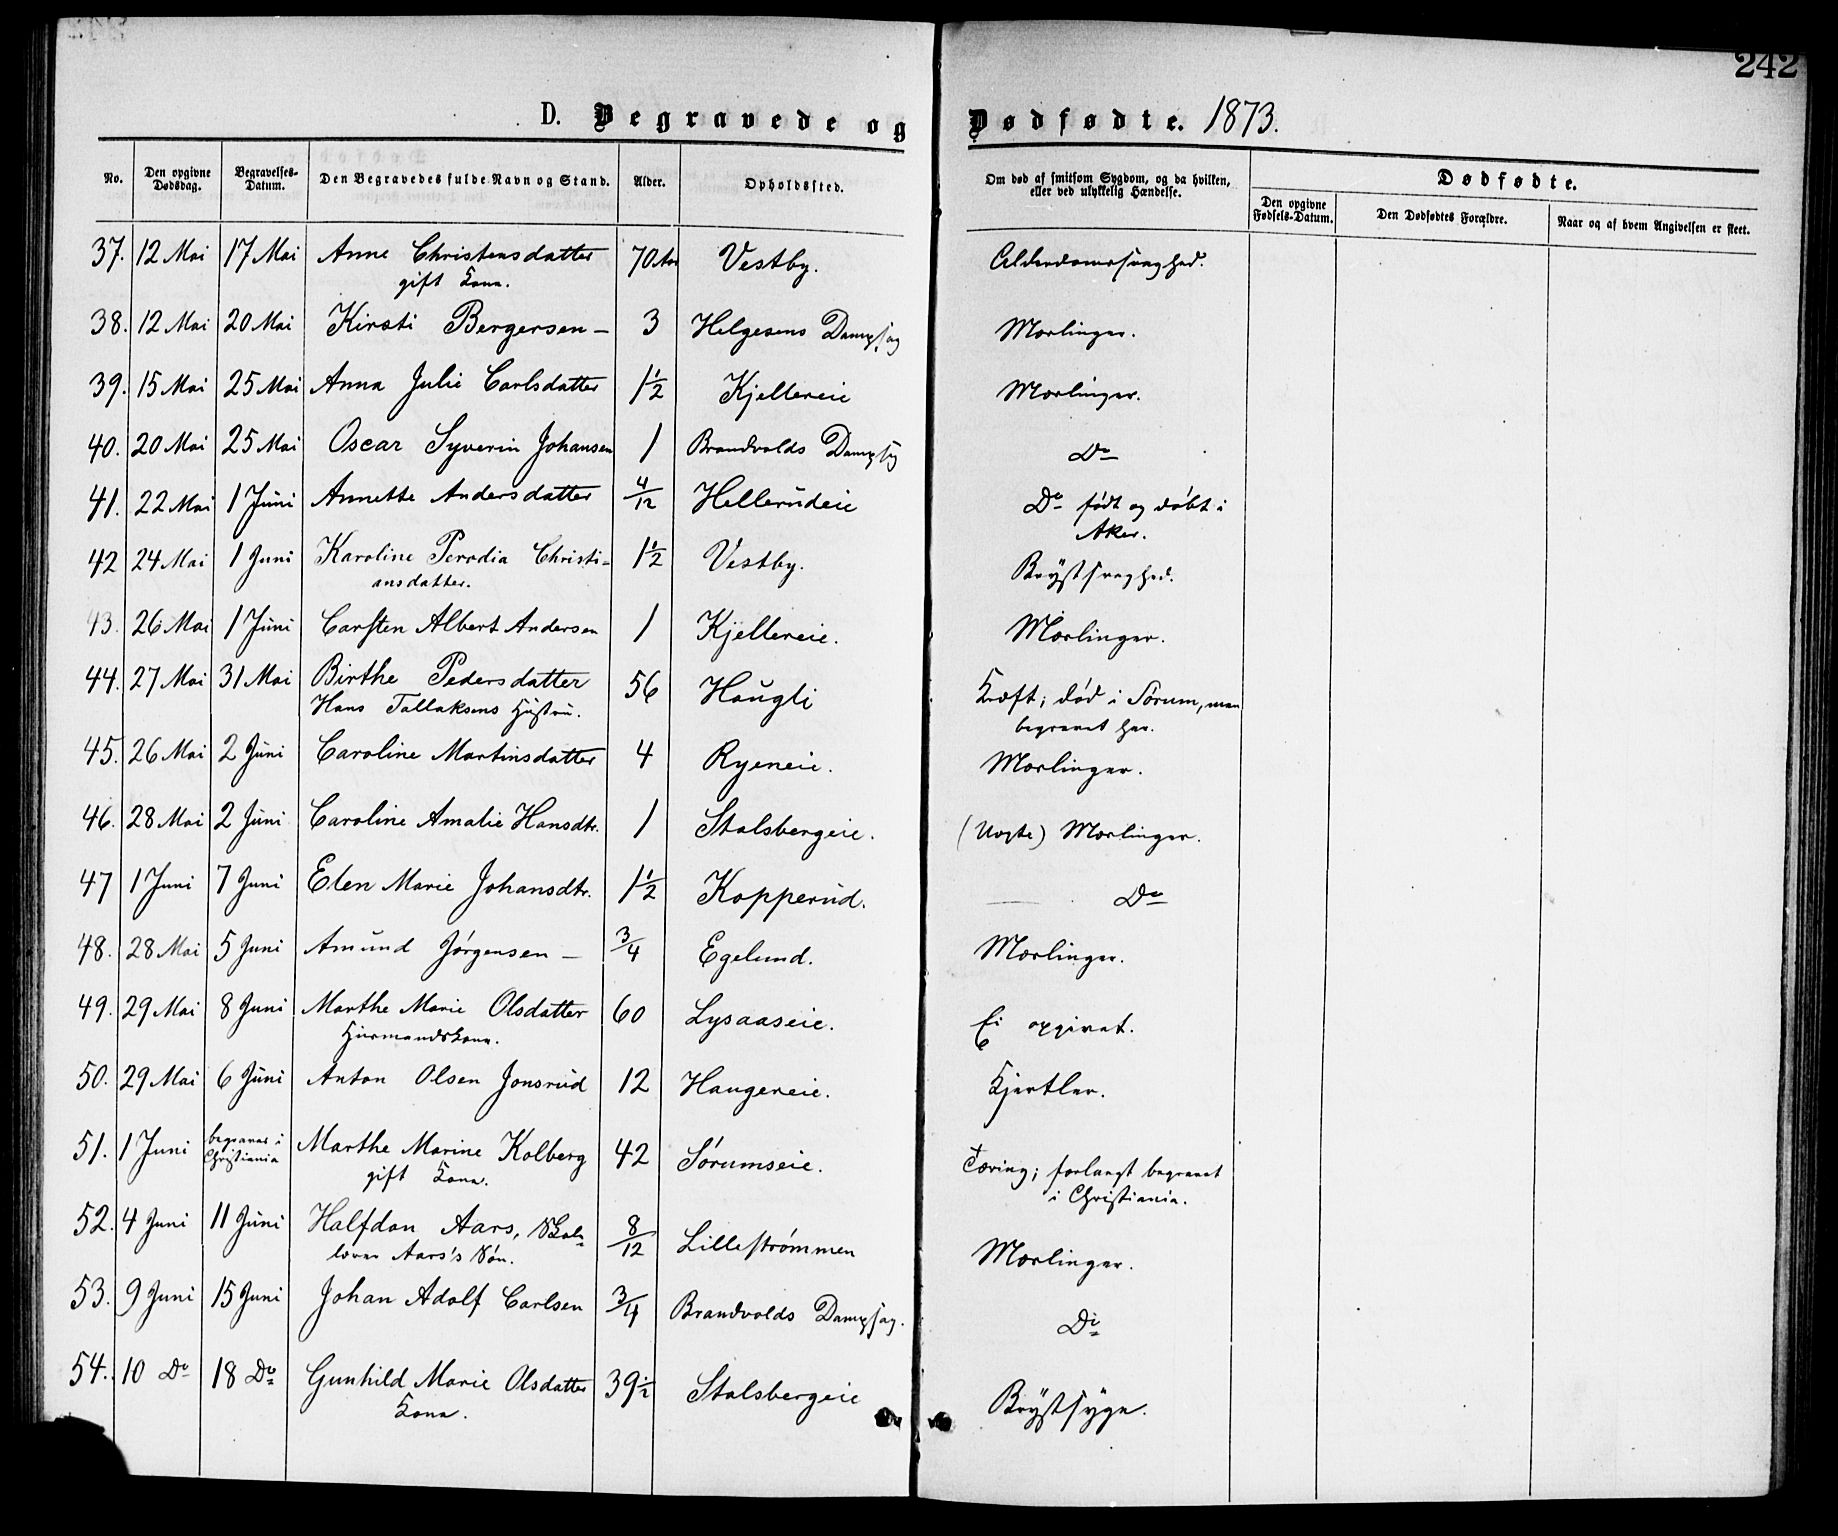 242
D. Begravede og Dødfødte. 1873.
No. Den opgivne Dødsdag. Begravelses-Datum. Den Begravedes fulde Navn og Stand. Alder. Opholdssted. Om død af smitsom Sygdom, og da hvilken, eller ved ulykkelig Hændelse. Dødfødte.
Den opgivne Fødsels-Datum. Den Dødfødtes Forældre. Naar og af hvem Angivelsen er skeet.
37. 12 Mai 17 Mai Anne Christensdatter 70 Aar Vestby. Alderdomssvaghed.
gift Kone.
38. 12 Mai 20 Mai Kirsti Bergersen — 3 Helgesens Dampsag Mæslinger.
39. 15 Mai 25 Mai Anna Julie Carlsdatter 1½ Kjellereie Mæslinger.
40. 20 Mai 25 Mai Oscar Syverin Johansen 1 Brandvolds Dampsag Do
41. 22 Mai 1 Juni Annette Andersdatter 4/12 Hellerudeie Do født og døbt i
Aker.
42 24 Mai 1 Juni Karoline Perodia Christi-
ansdatter. 1½ Vestby. Brystsvaghed.
43. 26 Mai 1 Juni Carsten Albert Andersen 1 Kjellereie. Mæslinger.
44. 27 Mai 31 Mai Birthe Pedersdatter 56 Haugli Kræft; død i Sørum, men
Hans Tollaksens Hustru. begravet her.
45. 26 Mai 2 Juni Caroline Martinsdatter 4 Ryeneie. Mæslinger.
46. 28 Mai 2 Juni Caroline Amalie Hansdtr. 1 Stalsbergeie. (Uægte) Mæslinger.
47 1 Juni 7 Juni Elen Marie Johansdtr. 1½ Kopperud. Do
48. 28 Mai 5 Juni Amund Jørgensen — 3/4 Egelund. Mæslinger.
49. 29 Mai 8 Juni Marthe Marie Olsdatter 60 Lysaaseie. Ei opgivet.
Huusmandskone.
50. 29 Mai 6 Juni Anton Olsen Jonsrud 12 Haugereie. Kjertler.
51. 1 Juni begraves i Christiania Marthe Marine Kolberg 42 Sørumseie. Tæring; forlangt begravet
gift Kone. i Christiania.
52. 4 Juni 11 Juni Halfdan Aars, Skole-
lærer Aars's Søn. 8/12 Lillestrømmen Mæslinger.
53. 9 Juni 15 Juni Johan Adolf Carlsen 3/4 Brandvolds Dampsag. Do
54. 10 Do 18 Do Gunhild Marie Olsdatter 39½ Stalsbergeie Brystsyge.
Kone.